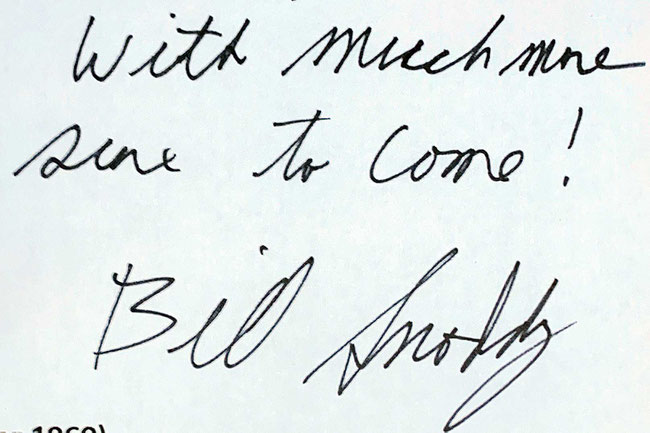 With much more
sure to come!
Bill Snoddy
1960)